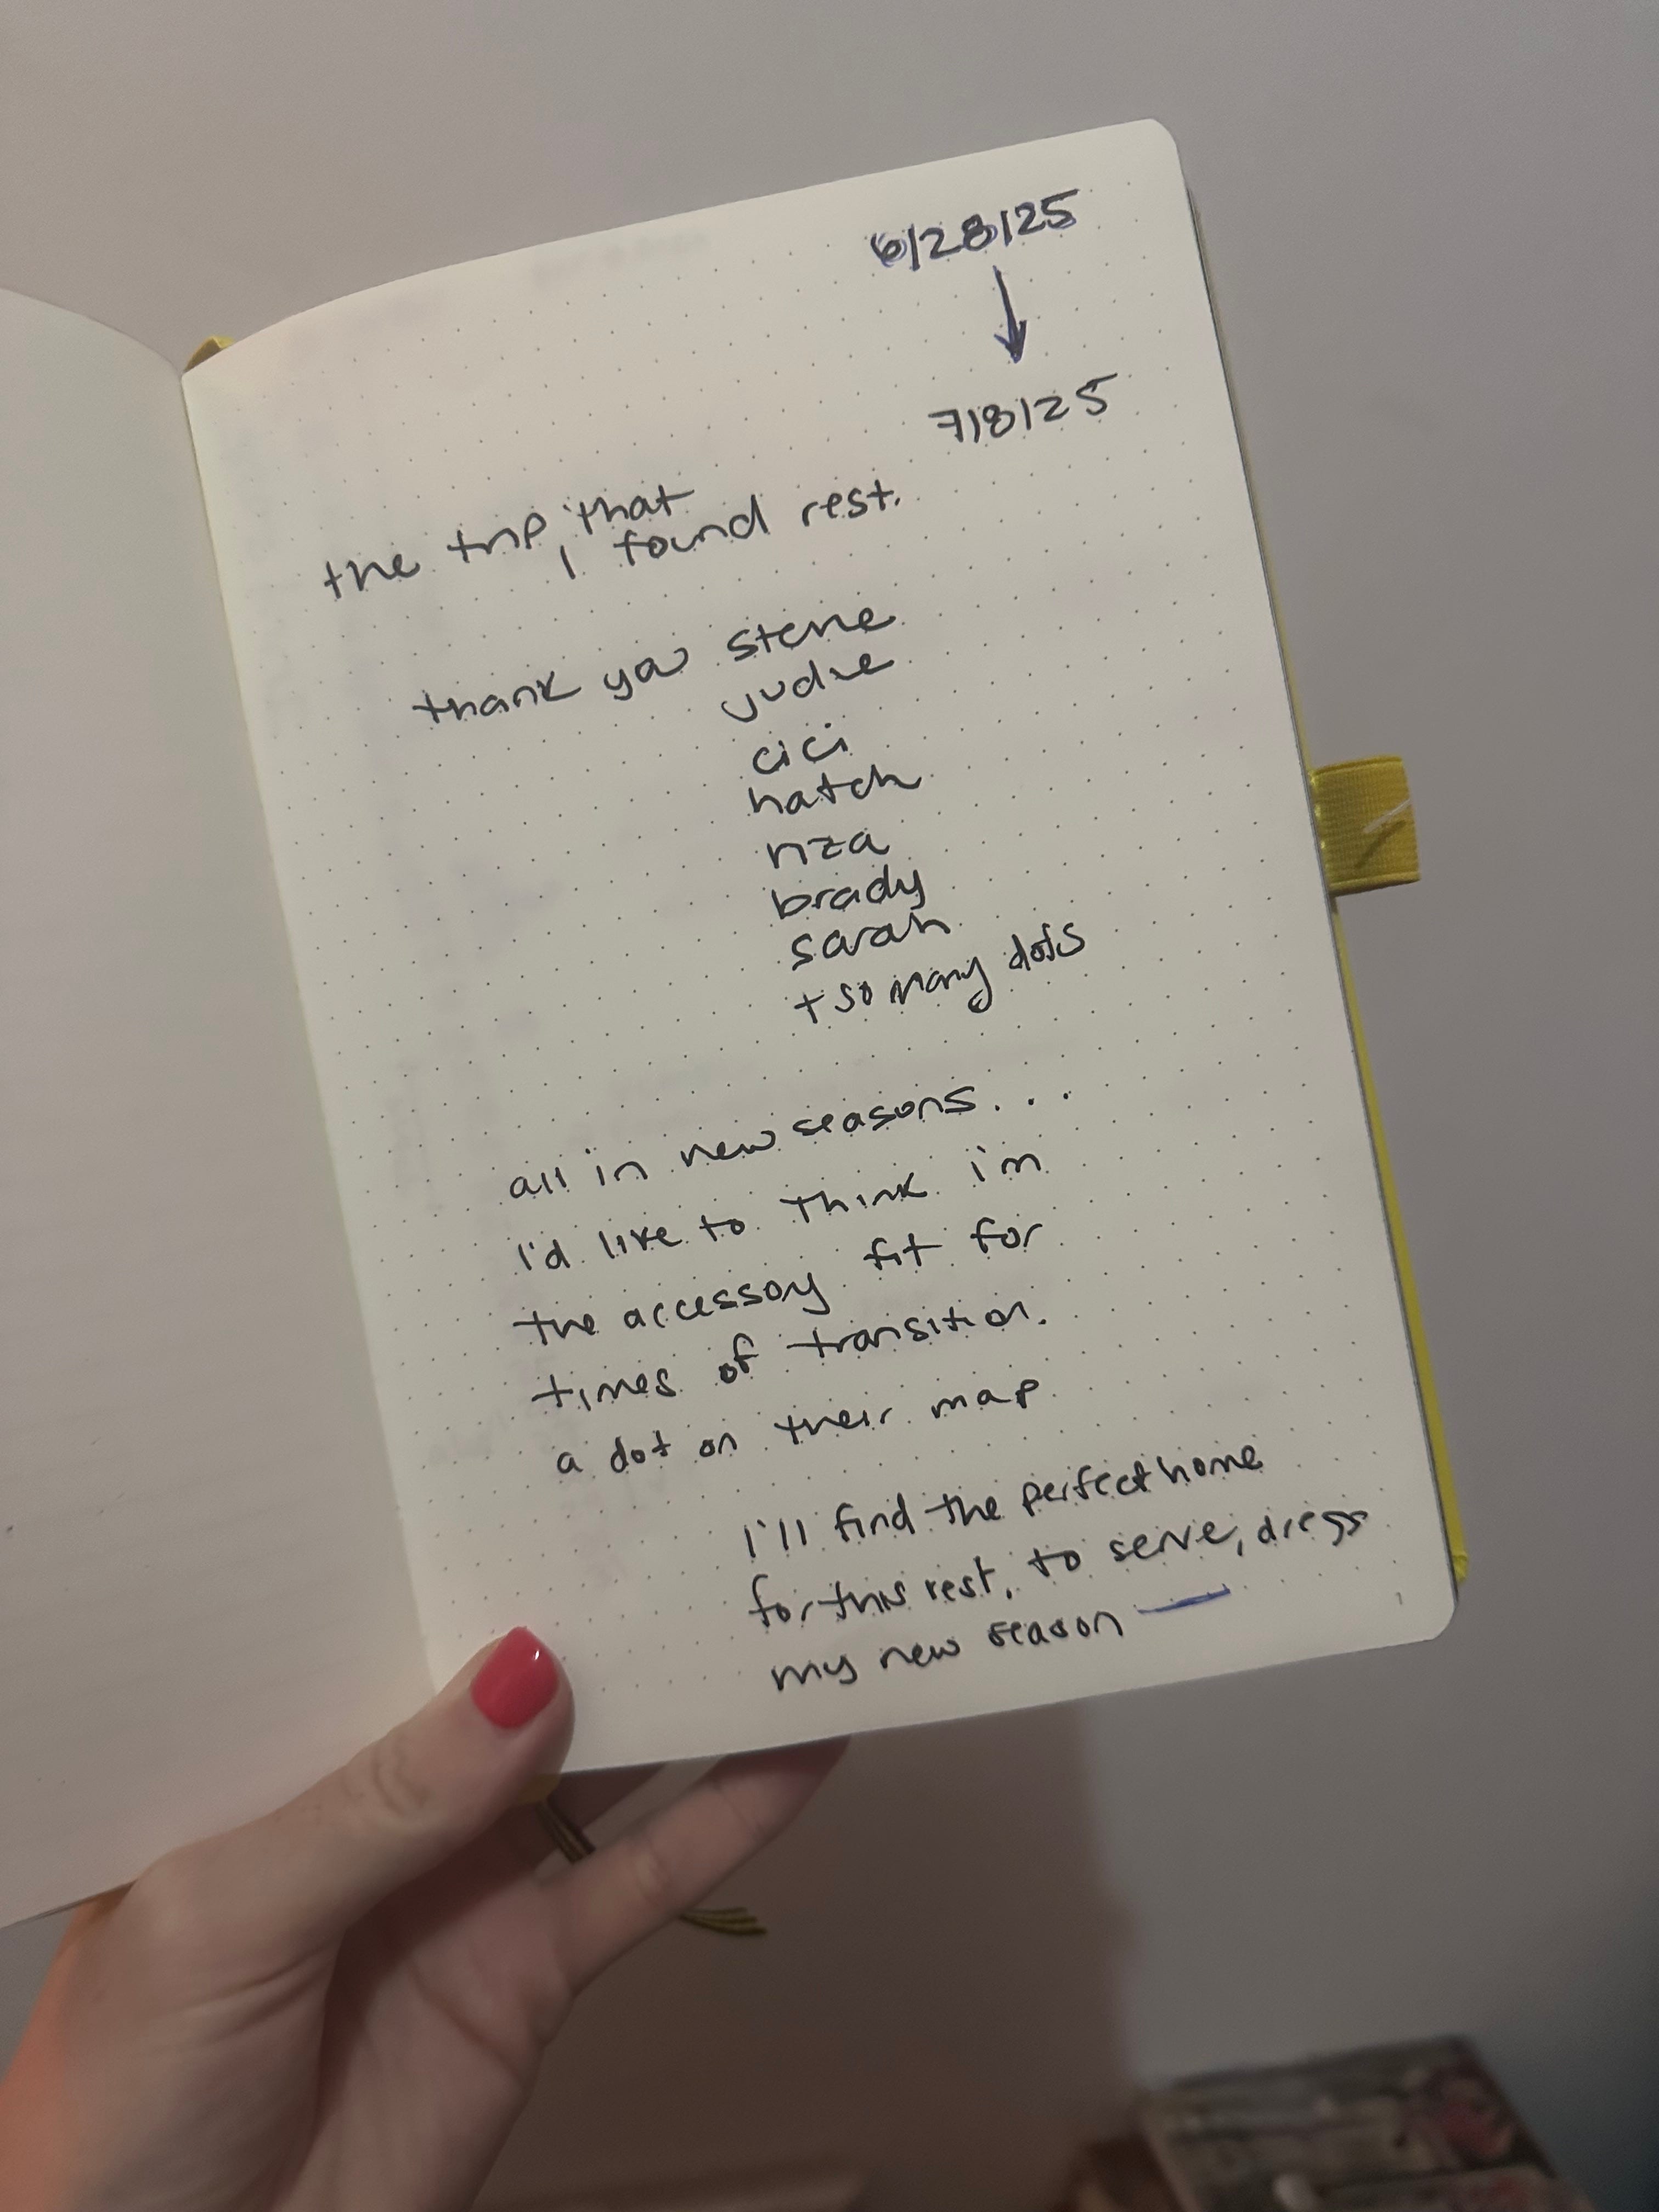 6/28/25
↓
7/8/25
the trip, that
i found rest.
thank you stevie
judie
cici
hatch
riza
brady
sarah
+ so many dots
all in new seasons...
i'd like to think i'm
the accessory fit for
times of transition.
a dot on their map
I'll find the perfect home
for this rest, to serve, dress
my new season —
1